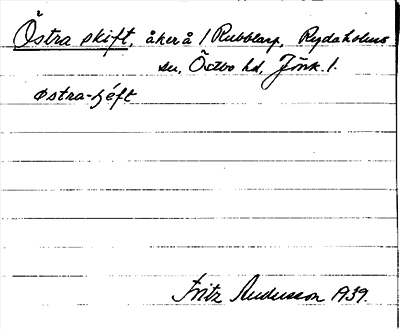 Östra skift, åker å / Rubblarp, Rydaholms
sn, Östbo hd, Jönk. l.
østra-ʃéft
Fritz Andersson 1939.